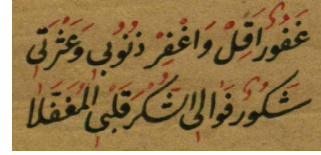 غَفُورُ اَقِلْ وَاغْفِرْ ذُنُوبِي وَعَثْرَتِي
شَكُورُ فَوَالِ الشُّكْرَ قَلْبِي الْمُغَفَّلَا